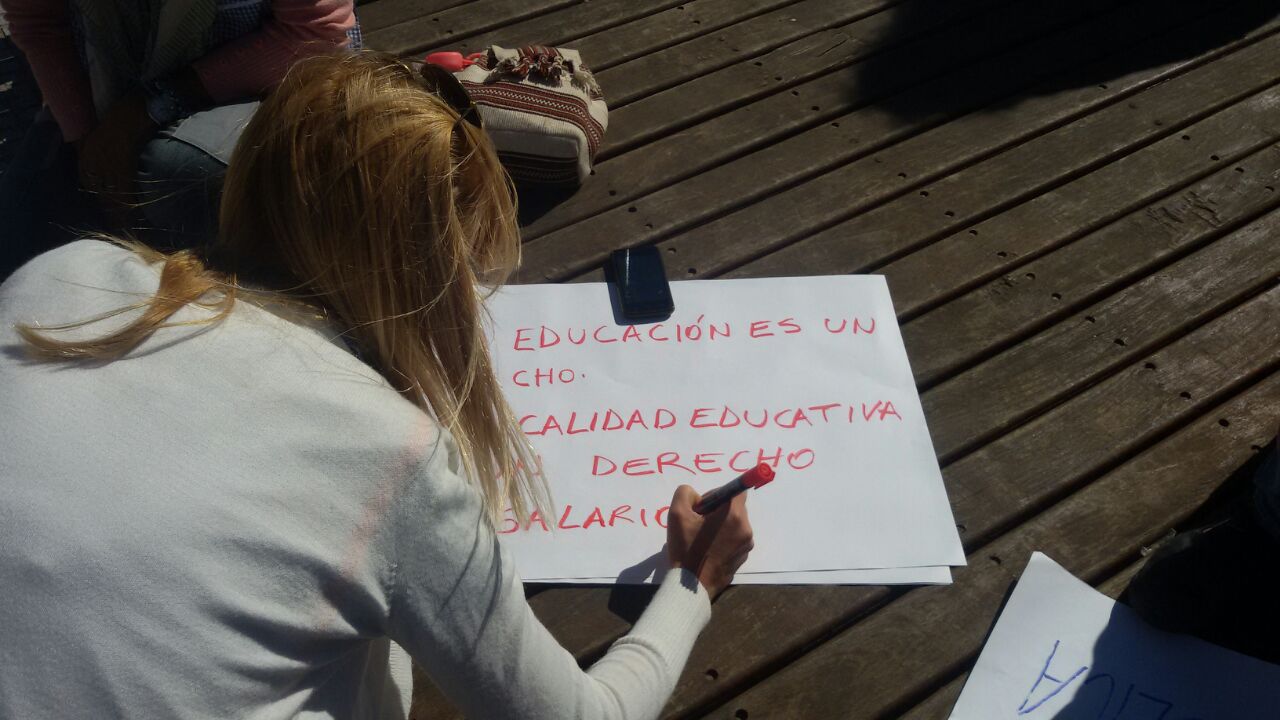 EDUCACIÓN ES UN
CHO.
CALIDAD EDUCATIVA
UN DERECHO
SALARIO